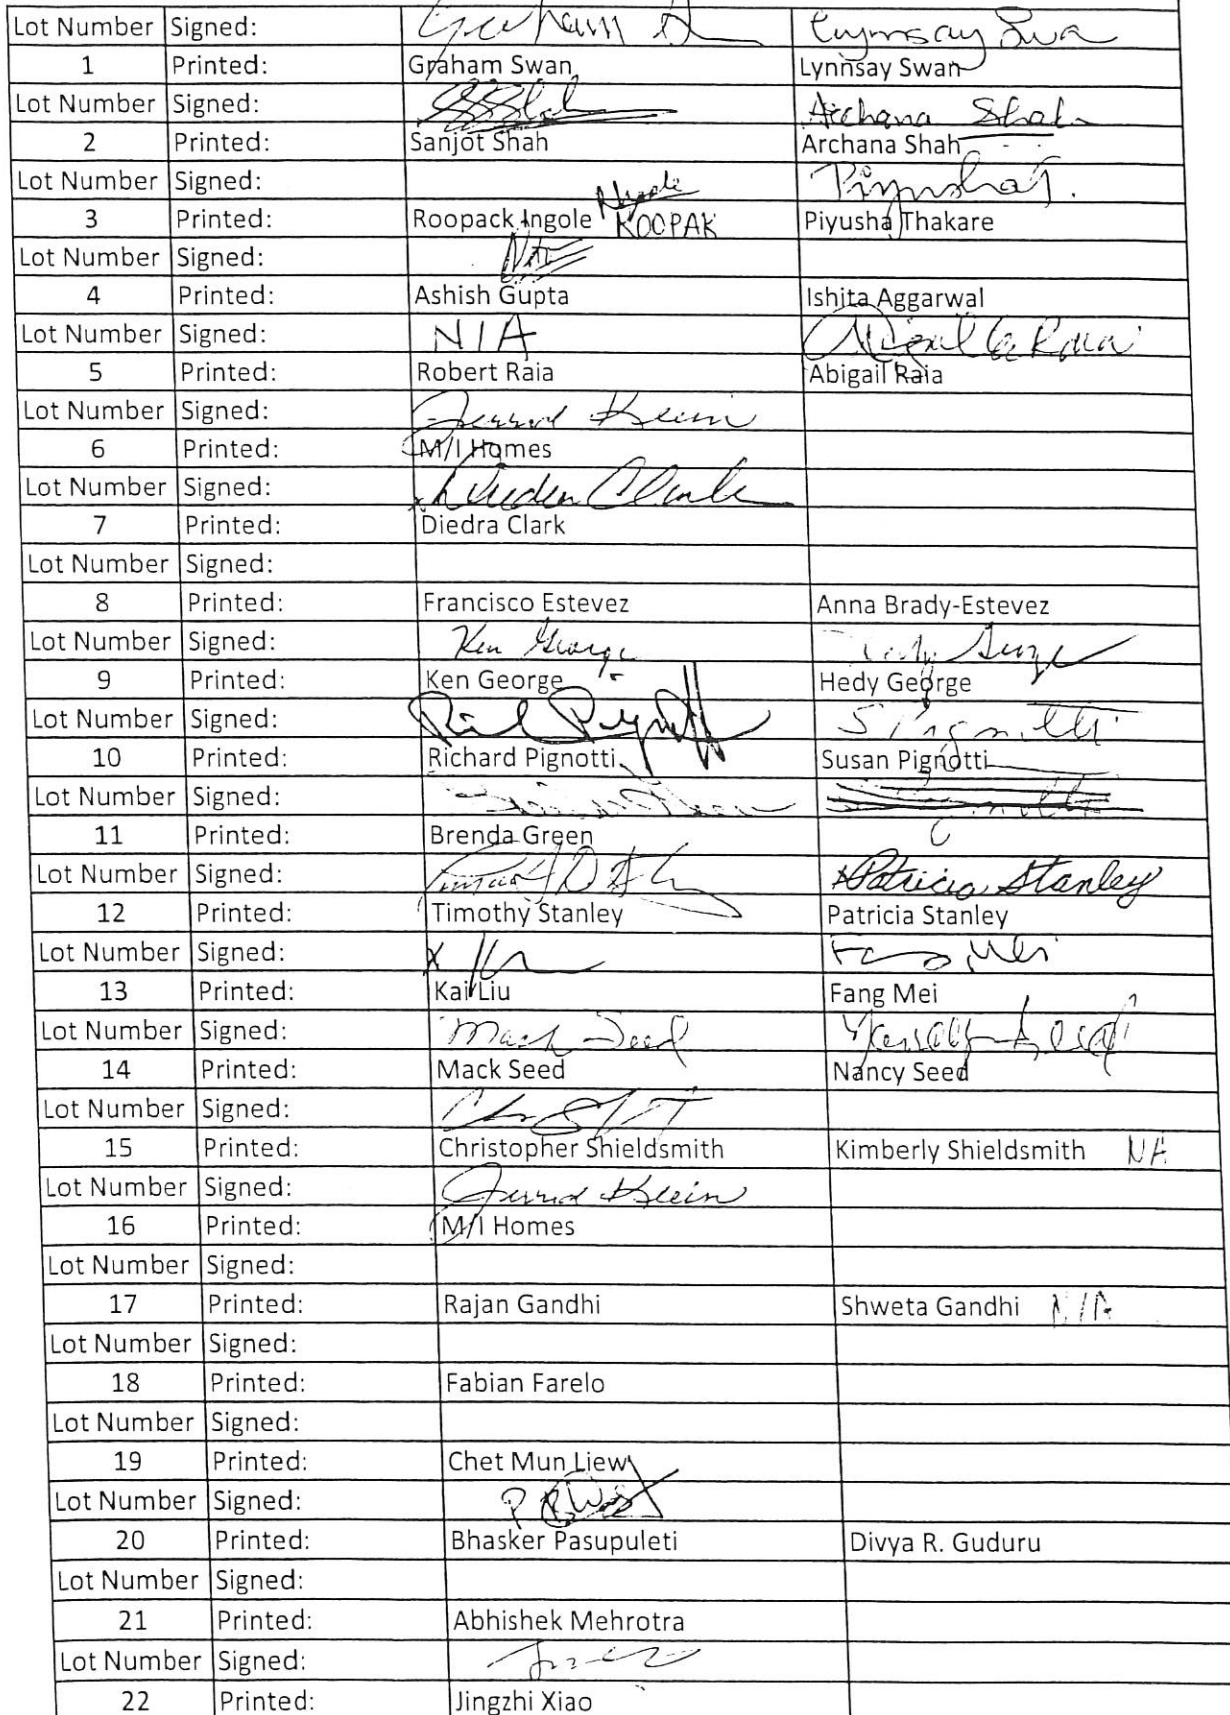 Lot Number Signed: Graham S Lynnsay Swan
1 Printed: Graham Swan Lynnsay Swan
Lot Number Signed: Archana Shah
2 Printed: Sanjot Shah Archana Shah
Lot Number Signed: PiyushaT.
3 Printed: Roopack Ingole ROOPAK Piyusha Thakare
Lot Number Signed:
4 Printed: Ashish Gupta Ishita Aggarwal
Lot Number Signed: N/A Abigail Raia
5 Printed: Robert Raia Abigail Raia
Lot Number Signed: Jerrod Klein
6 Printed: M/I Homes
Lot Number Signed: Diedra Clark
7 Printed: Diedra Clark
Lot Number Signed:
8 Printed: Francisco Estevez Anna Brady-Estevez
Lot Number Signed: Ken George Hedy George
9 Printed: Ken George Hedy George
Lot Number Signed: Rich Pignotti S Pignotti
10 Printed: Richard Pignotti Susan Pignotti
Lot Number Signed:
11 Printed: Brenda Green
Lot Number Signed: Patricia Stanley
12 Printed: Timothy Stanley Patricia Stanley
Lot Number Signed: X Fang Mei
13 Printed: Kai Liu Fang Mei
Lot Number Signed: Mack Seed Nancy Seed
14 Printed: Mack Seed Nancy Seed
Lot Number Signed:
15 Printed: Christopher Shieldsmith Kimberly Shieldsmith NA
Lot Number Signed: Jerrod Klein
16 Printed: M/I Homes
Lot Number Signed:
17 Printed: Rajan Gandhi Shweta Gandhi N/A
Lot Number Signed:
18 Printed: Fabian Farelo
Lot Number Signed:
19 Printed: Chet Mun Liew
Lot Number Signed:
20 Printed: Bhasker Pasupuleti Divya R. Guduru
Lot Number Signed:
21 Printed: Abhishek Mehrotra
Lot Number Signed:
22 Printed: Jingzhi Xiao